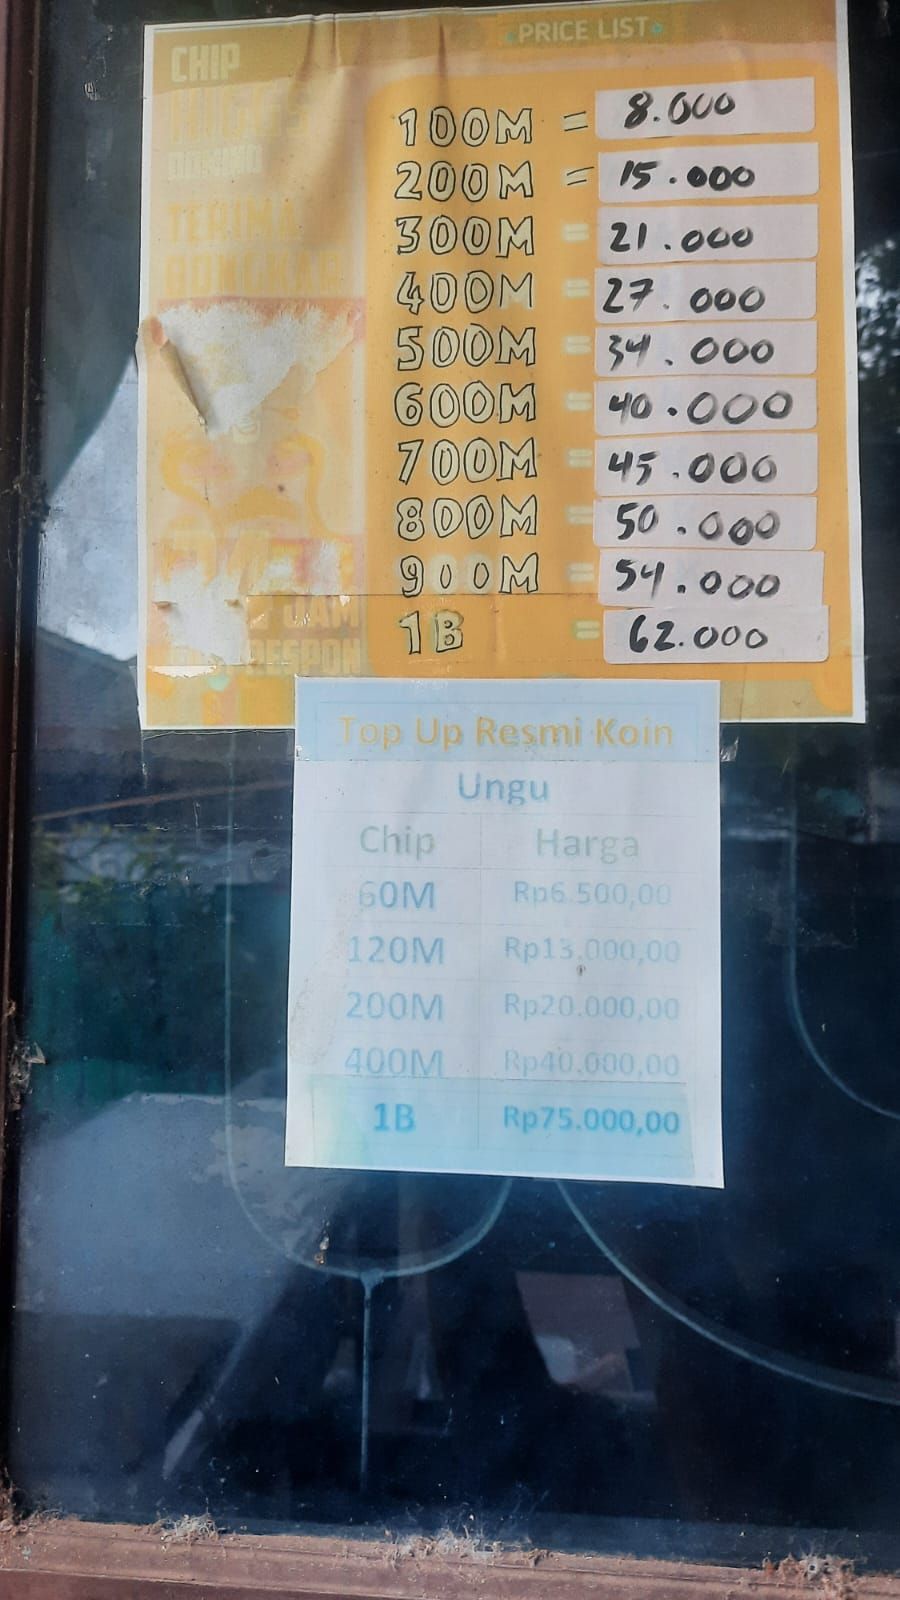 PRICE LIST
CHIP
HIGGS
DOMINO
TERIMA
BONGKAR
100M = 8.000
200M = 15.000
300M = 21.000
400M = 27.000
500M = 34.000
600M = 40.000
700M = 45.000
800M = 50.000
900M = 54.000
1B = 62.000
JAM
RESPON
Top Up Resmi Koin
Ungu
Chip Harga
60M Rp6.500,00
120M Rp13.000,00
200M Rp20.000,00
400M Rp40.000,00
1B Rp75.000,00